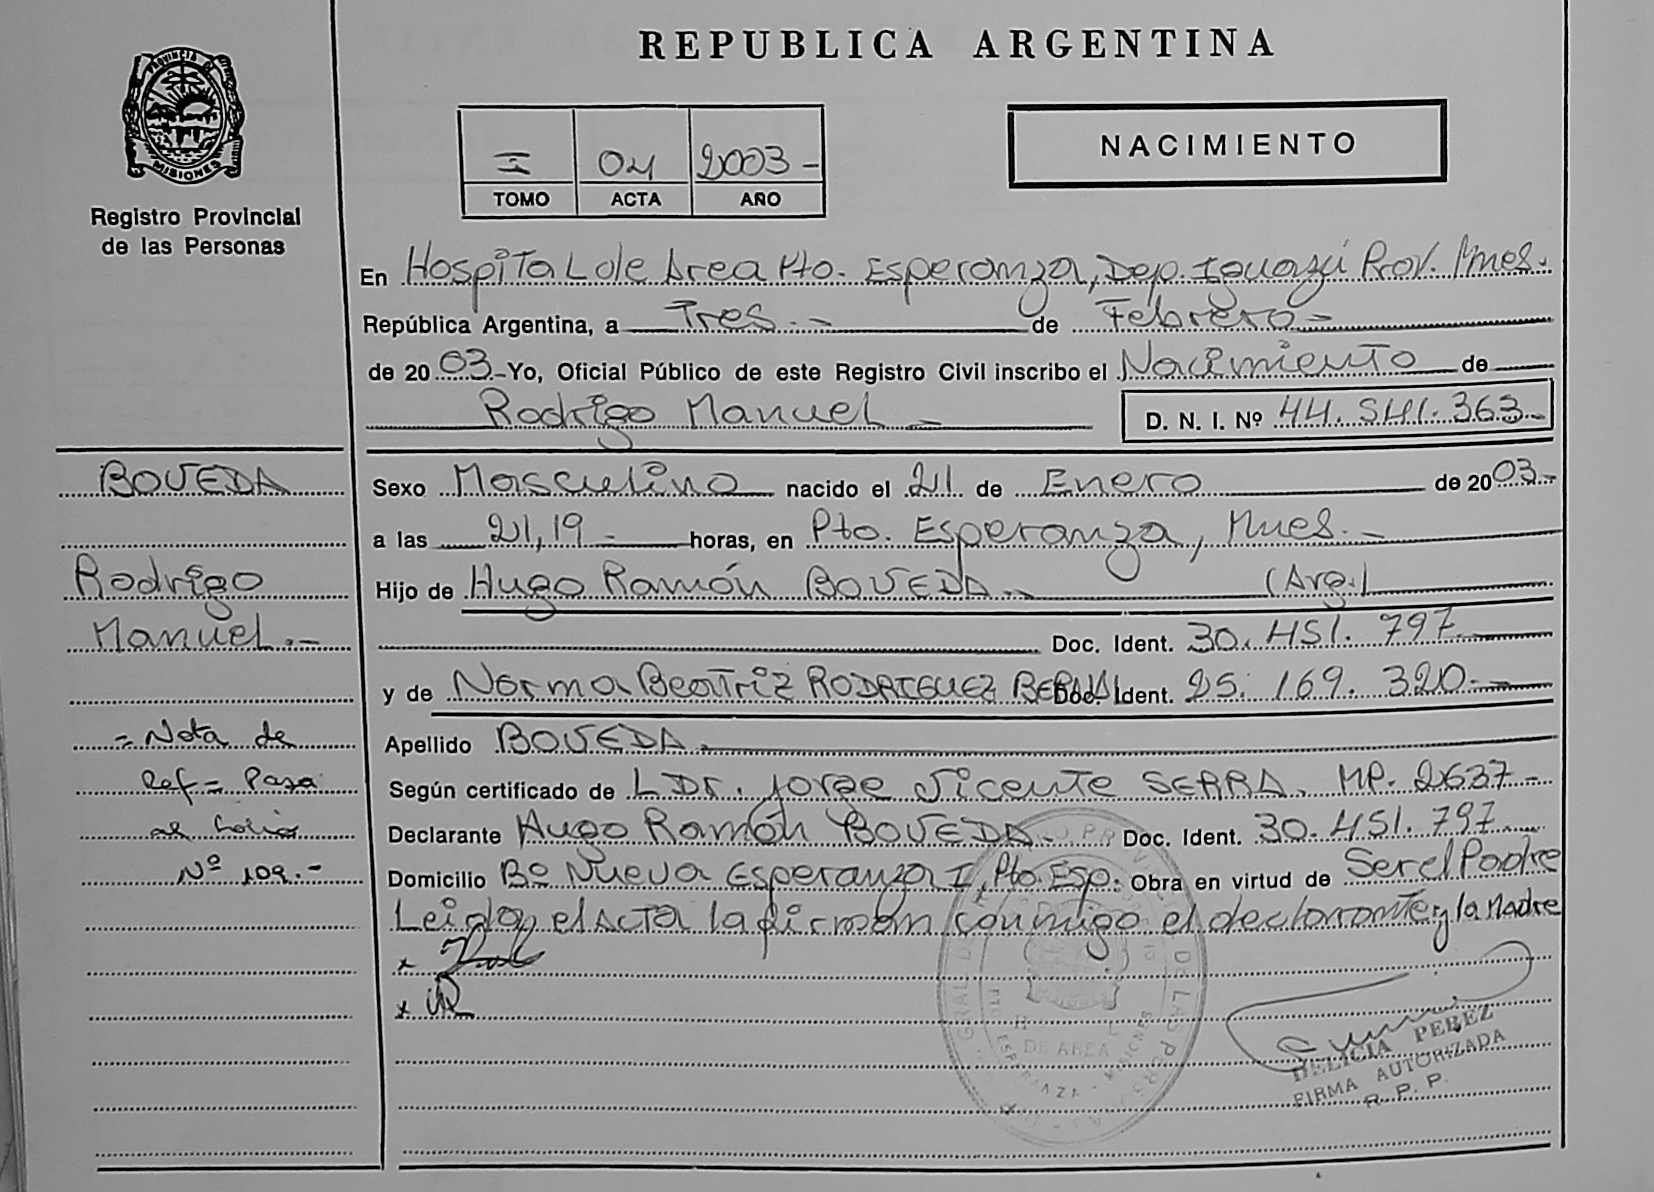 REPUBLICA ARGENTINA
PROVINCIA DE MISIONES
Registro Provincial
de las Personas
I 04 2003-
TOMO ACTA AÑO
NACIMIENTO
En Hospital de Area Pto. Esperanza, Dep. Iguazú Prov. Mnes.
República Argentina, a Tres.- de Febrero-
de 2003.- Yo, Oficial Público de este Registro Civil inscribo el Nacimiento de
Rodrigo Manuel- D. N. I. Nº 44.541.363-
BOVEDA
Rodrigo
Manuel.-
=Nota de
Ref= Pasa
al folio
Nº 109.-
Sexo Masculino nacido el 21 de Enero de 2003.-
a las 21,19- horas, en Pto. Esperanza, Mnes.-
Hijo de Hugo Ramón BOVEDA.- (Arg.)
Doc. Ident. 30.451.797
y de Norma Beatriz RODRIGUEZ Doc. Ident. 25.169.320.-
Apellido BOVEDA.
Según certificado de Dr. Jorge Vicente SERRA. MP. 2637-
Declarante Hugo Ramón BOVEDA- Doc. Ident. 30.451.797
Domicilio Bº Nueva Esperanza I, Pto. Esp. Obra en virtud de Ser el Padre
Leida el Acta la firman conmigo el declarante y la Madre
DELICIA PEREZ
FIRMA AUTORIZADA
R. P. P.